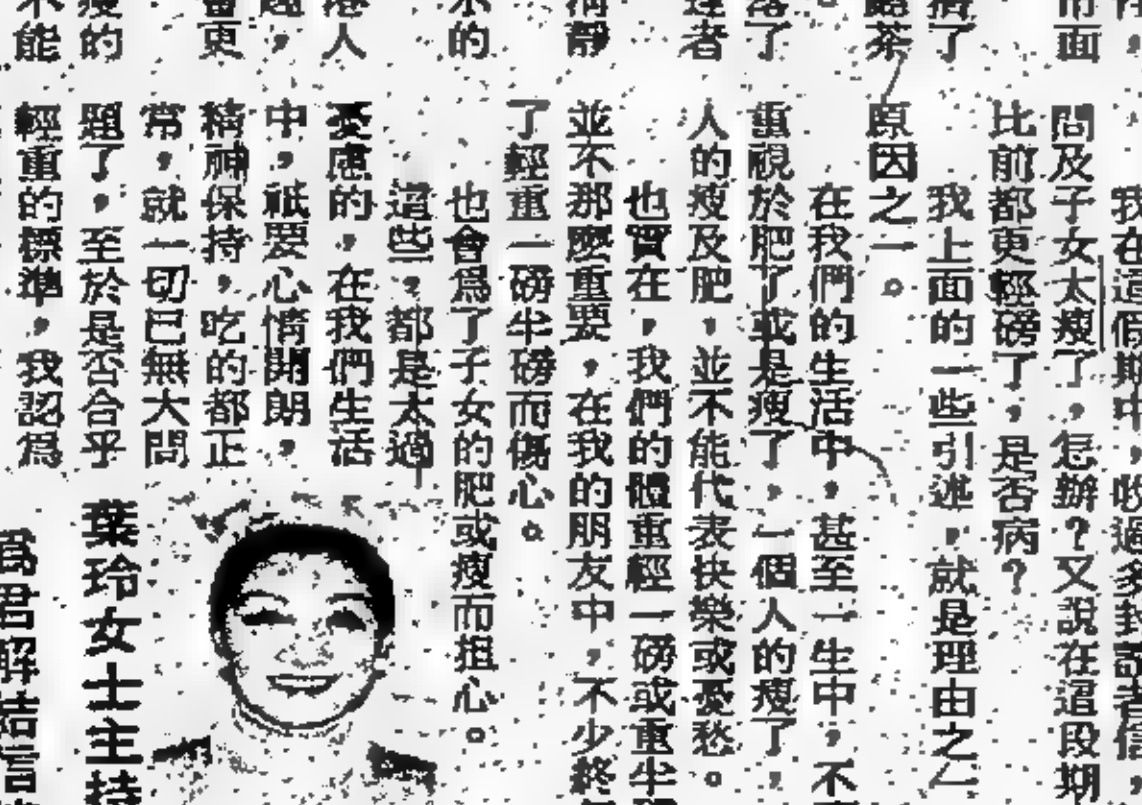 面
了
茶
了
者
靜
的
港人
，
更
瘦的
不能
我在這假期中，收過多封讀者信，
問及子女太瘦了，怎辦？又說在這段期
比前都更輕磅了，是否病？
我上面的一些引述，就是理由之一
原因之一。
在我們的生活中，甚至一生中，不
重視於肥了或是瘦了，一個人的瘦了，
人的瘦及肥，並不能代表快樂或憂愁。
也實在，我們的體重輕一磅或重半
並不那麼重要，在我的朋友中，不少終
了輕重一磅半磅而傷心。
也會爲了子女的肥或瘦而担心。
這些，都是太過
憂慮的，在我們生活
中，祗要心情開朗，
精神保持，吃的都正
常，就一切已無大問
題了，至於是否合乎
輕重的標準，我認爲
葉玲女士主持
爲君解結信